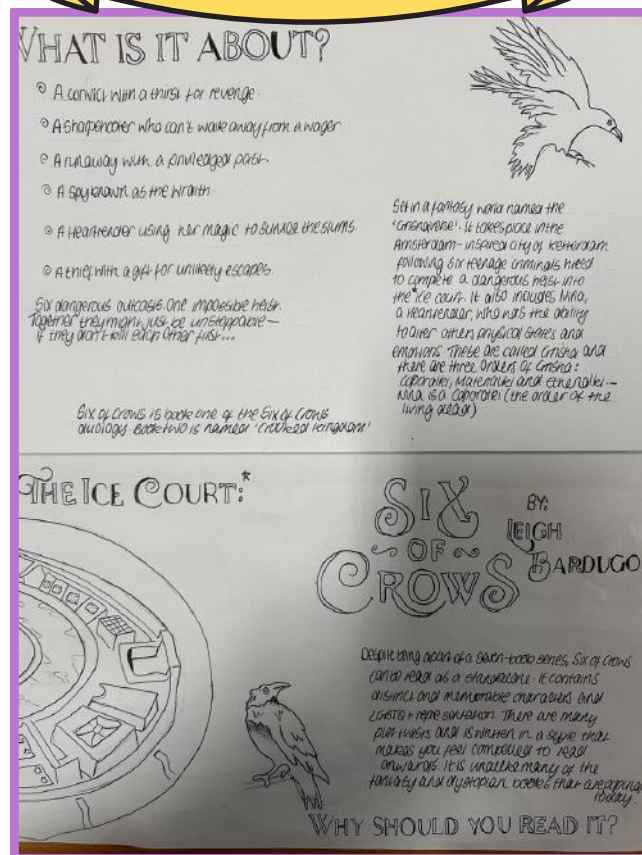 WHAT IS IT ABOUT?
A convict with a thirst for revenge.
A sharpshooter who can't walk away from a wager
A runaway with a privileged past.
A spy known as the Wraith.
A Heartrender using her magic to survive the slums.
A thief with a gift for unlikely escapes.
Six dangerous outcasts. One impossible heist.
Together they might just be unstoppable —
if they don't kill each other first...
Six of Crows is book one of the Six of Crows
duology. Book two is named 'Crooked Kingdom'
Set in a fantasy world named the
'Grishaverse'. It takes place in the
Amsterdam-inspired city of Ketterdam
following six teenage criminals hired
to compete a dangerous heist into
the *ice court. It also includes Nina,
a Heartrender, who has the ability
to alter others physical states and
emotions. These are called Grisha and
there are three orders of Grisha:
Corporalki, Materialki and Etherealki —
Nina is a Coporalki (the order of the
living dead)
THE ICE COURT:*
SIX
OF
CROWS
BY:
LEIGH
BARDUGO
Despite being a part of a seven-book series, Six of Crows
can be read as a standalone. It contains
distinct and memorable characters and
LGBTQ+ representation. There are many
plot twists and is written in a style that
makes you feel compelled to read
onwards. It is unalike many of the
fantasy and dystopian books that are popular
today.
WHY SHOULD YOU READ IT?